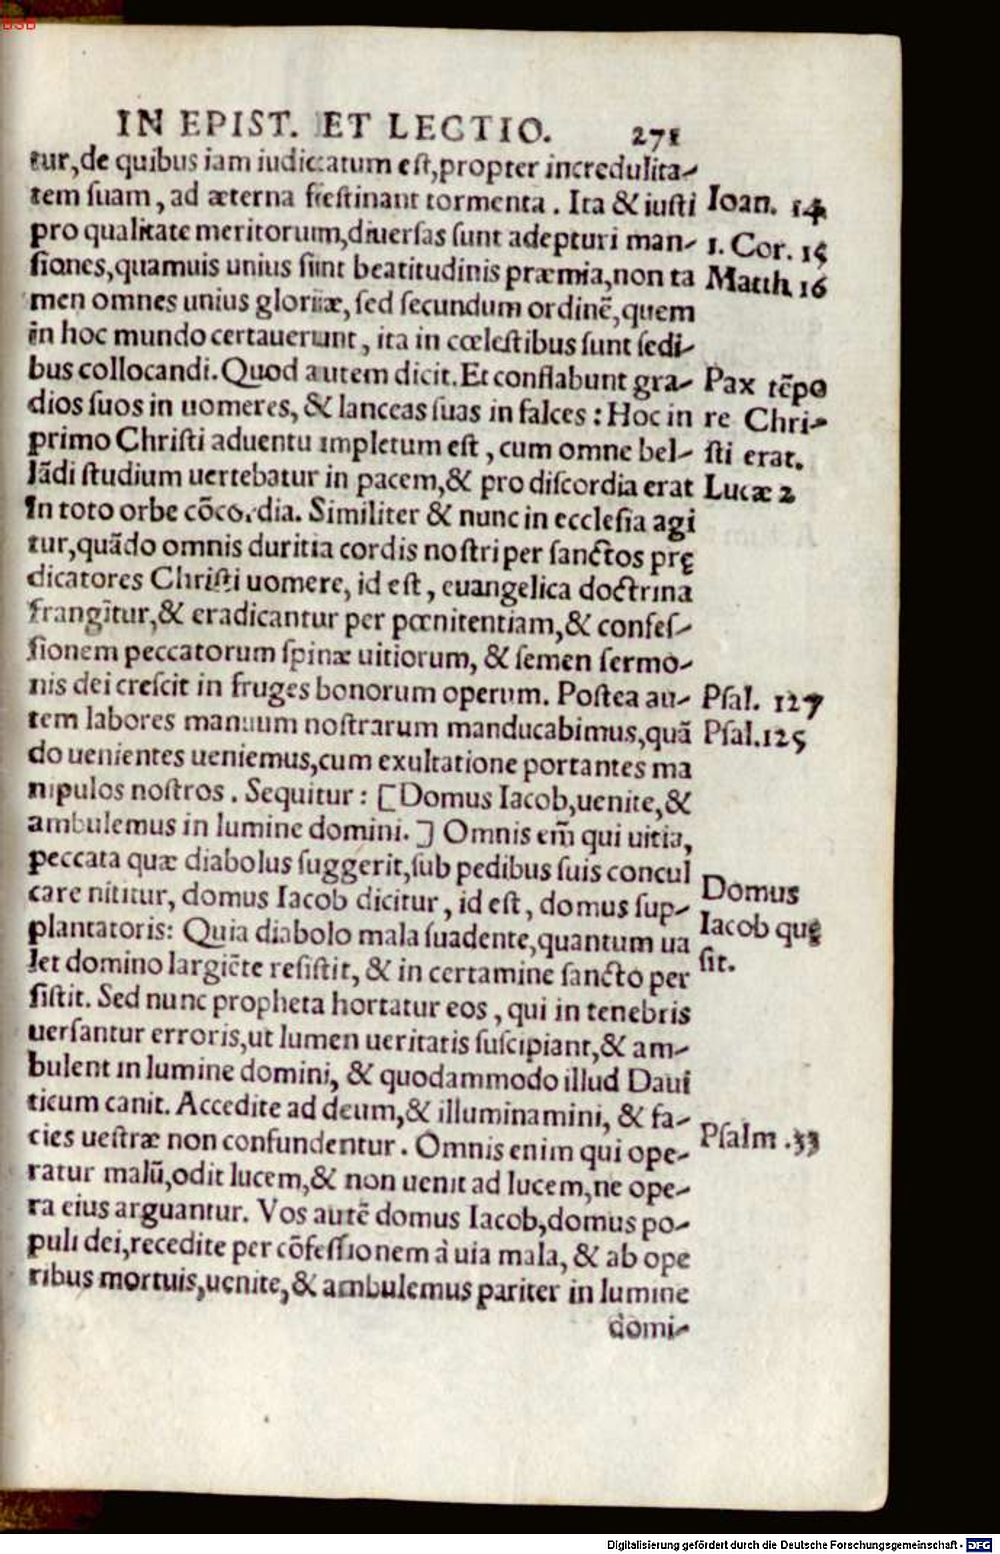 BSB
IN EPIST. ET LECTIO. 271
tur, de quibus iam iudicatum est, propter incredulita-
tem suam, ad æterna festinant tormenta. Ita & iusti
Ioan. 14
pro qualitate meritorum, diuersas sunt adepturi man-
1. Cor. 15
siones, quamuis unius sunt beatitudinis præmia, non ta
Matth. 16
men omnes unius gloriæ, sed secundum ordinē, quem
in hoc mundo certauerunt, ita in cœlestibus sunt sedi-
bus collocandi. Quod autem dicit. Et conflabunt gra-
Pax tēpo
dios suos in uomeres, & lanceas suas in falces: Hoc in
re Chri-
primo Christi aduentu impletum est, cum omne bel-
sti erat.
lādi studium uertebatur in pacem, & pro discordia erat
Lucæ 2
In toto orbe cōcordia. Similiter & nunc in ecclesia agi
tur, quādo omnis duritia cordis nostri per sanctos prę
dicatores Christi uomere, id est, euangelica doctrina
frangitur, & eradicantur per pœnitentiam, & confes-
sionem peccatorum spinæ uitiorum, & semen sermo-
nis dei crescit in fruges bonorum operum. Postea au-
Psal. 127
tem labores manuum nostrarum manducabimus, quā
Psal. 125
do uenientes ueniemus, cum exultatione portantes ma
nipulos nostros. Sequitur: [Domus Iacob, uenite, &
ambulemus in lumine domini.] Omnis em̄ qui uitia,
peccata quæ diabolus suggerit, sub pedibus suis concul
care nititur, domus Iacob dicitur, id est, domus sup-
Domus
plantatoris: Quia diabolo mala suadente, quantum ua
Iacob quę
let domino largiēte resistit, & in certamine sancto per
sit.
sistit. Sed nunc propheta hortatur eos, qui in tenebris
uersantur erroris, ut lumen ueritatis suscipiant, & am-
bulent in lumine domini, & quodammodo illud Daui
ticum canit. Accedite ad deum, & illuminamini, & fa-
cies uestræ non confundentur. Omnis enim qui ope-
Psalm. 33
ratur malū, odit lucem, & non uenit ad lucem, ne ope-
ra eius arguantur. Vos autē domus Iacob, domus po-
puli dei, recedite per cōfessionem à uia mala, & ab ope
ribus mortuis, uenite, & ambulemus pariter in lumine
domi-
Digitalisierung gefördert durch die Deutsche Forschungsgemeinschaft - DFG